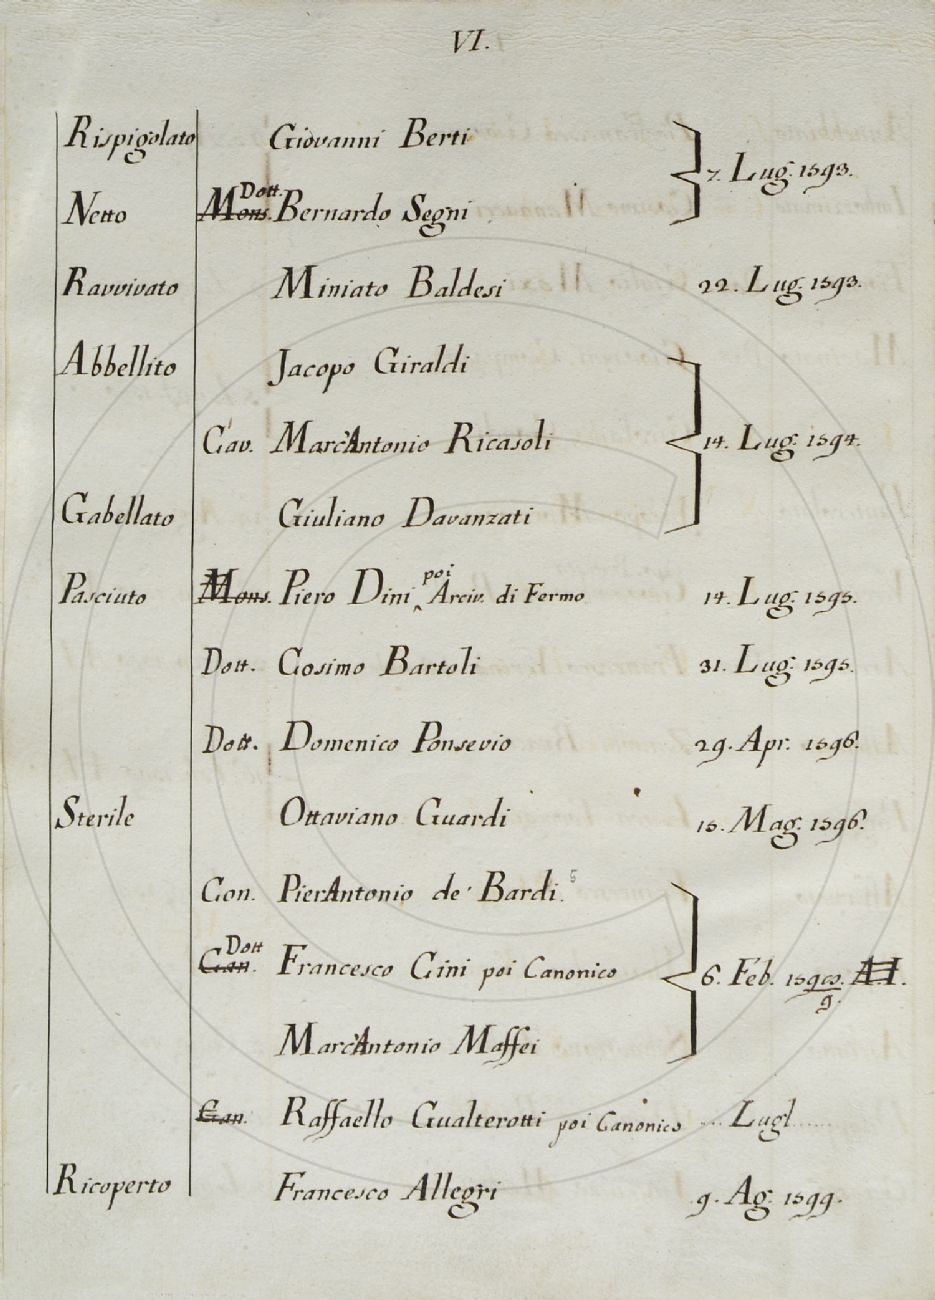 VI.
Rispigolato Giovanni Berti
7. Lug. 1593.
Netto Mons. Dott. Bernardo Segni
Ravvivato Miniato Baldesi 22. Lug. 1593.
Abbellito Jacopo Giraldi
Cav. Marc'Antonio Ricasoli 14. Lug. 1594.
Gabellato Giuliano Davanzati
Pasciuto Mons. Piero Dini poi Arciv. di Fermo 14. Lug. 1595.
Dott. Cosimo Bartoli 31. Lug. 1595.
Dott. Domenico Ponsevio 29. Apr. 1596.
Sterile Ottaviano Guardi 15. Mag. 1596.
Con. PierAntonio de' Bardi.
Can. Dott Francesco Gini poi Canonico 6. Feb. 159 9. A.I.
Marc'Antonio Maffei
Can. Raffaello Gualterotti poi Canonico ... Lugl......
Ricoperto Francesco Allegri 9. Ag. 1599.